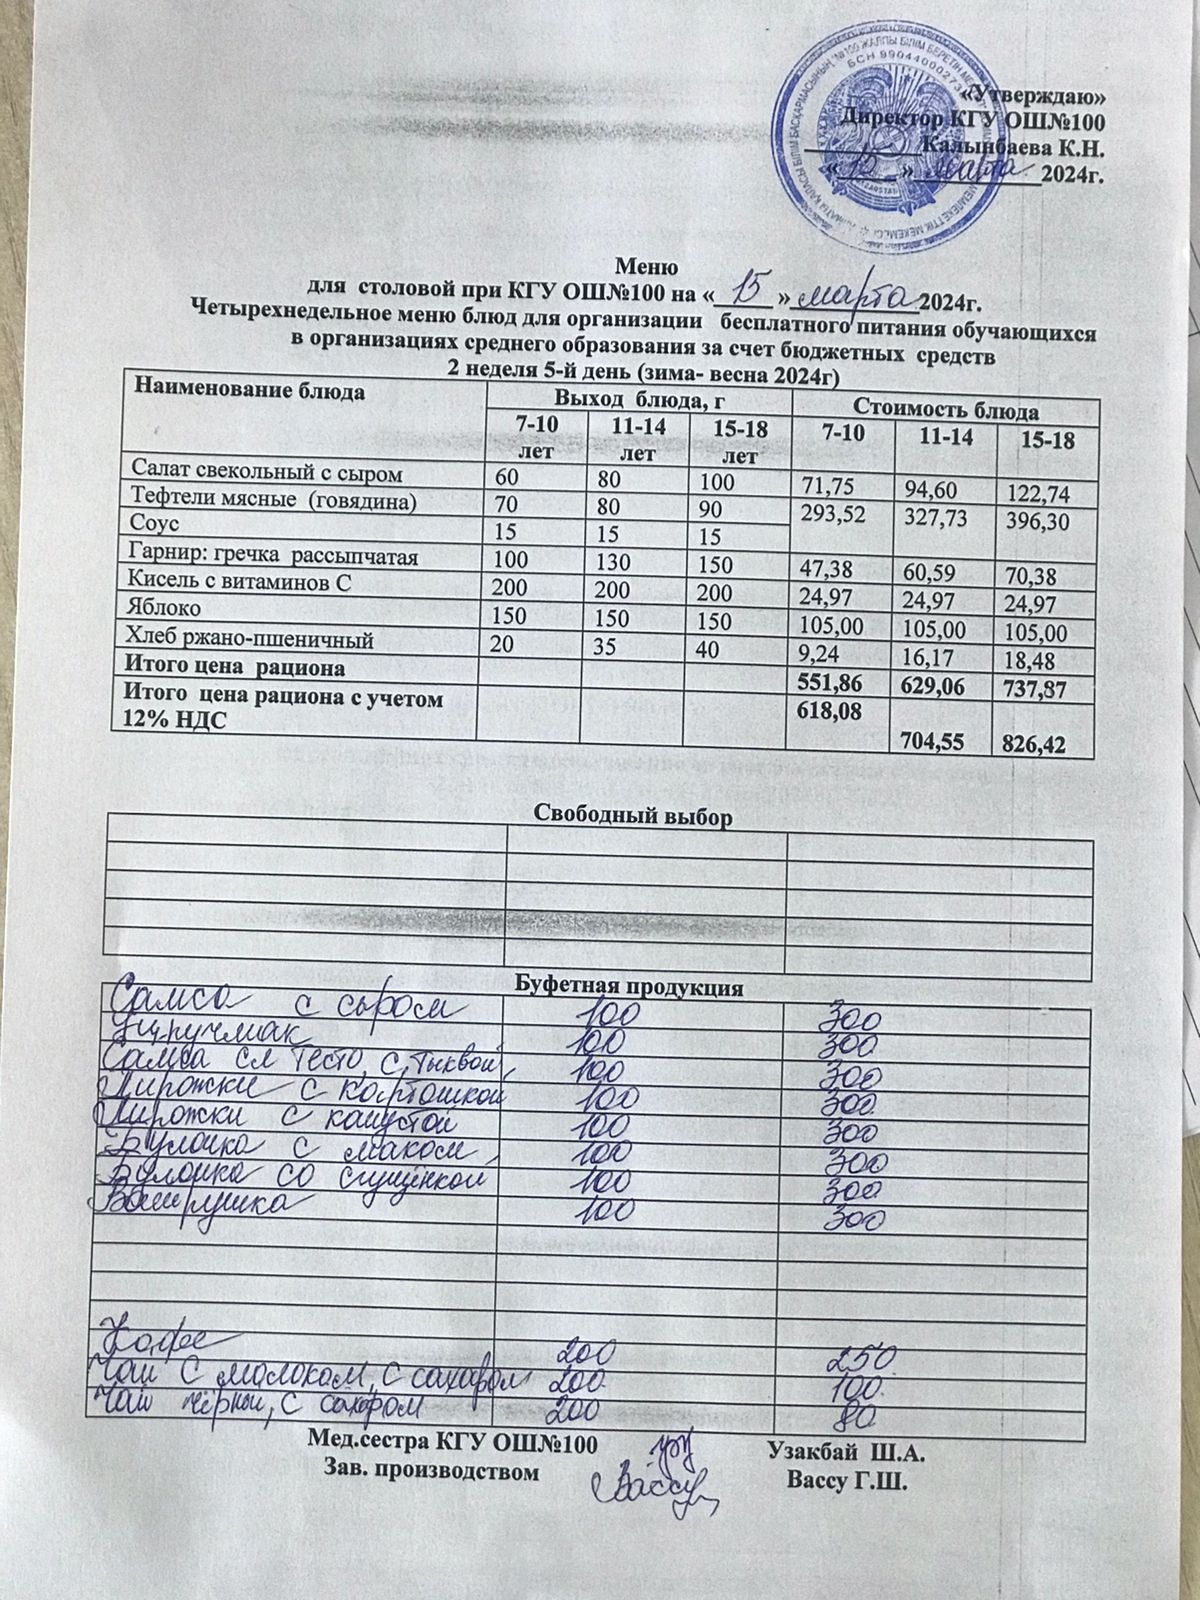 «Утверждаю»
Директор КГУ ОШ№100
__________Калынбаева К.Н.
«_15_»_марта_2024г.
Меню
для столовой при КГУ ОШ№100 на «_15_»_марта_2024г.
Четырехнедельное меню блюд для организации бесплатного питания обучающихся
в организациях среднего образования за счет бюджетных средств
2 неделя 5-й день (зима- весна 2024г)
Наименование блюда Выход блюда, г Стоимость блюда
7-10 лет 11-14 лет 15-18 лет 7-10 11-14 15-18
Салат свекольный с сыром 60 80 100 71,75 94,60 122,74
Тефтели мясные (говядина) 70 80 90 293,52 327,73 396,30
Соус 15 15 15
Гарнир: гречка рассыпчатая 100 130 150 47,38 60,59 70,38
Кисель с витаминов С 200 200 200 24,97 24,97 24,97
Яблоко 150 150 150 105,00 105,00 105,00
Хлеб ржано-пшеничный 20 35 40 9,24 16,17 18,48
Итого цена рациона 551,86 629,06 737,87
Итого цена рациона с учетом 618,08
12% НДС 704,55 826,42
Свободный выбор
Буфетная продукция
Самса с сыром 100 300
100 300
Самса сл тесто, с тыквой 100 300
Пирожки с картошкой 100 300
Пирожки с капустой 100 300
Булочка с маком 100 300
Булочка со сгущёнкой 100 300
Ватрушка 100 300
Кофе 200 250
Чай с молоком, с сахаром 200 100
Чай чёрный, с сахаром 200 80
Мед.сестра КГУ ОШ№100 Узакбай Ш.А.
Зав. производством Вассу Вассу Г.Ш.